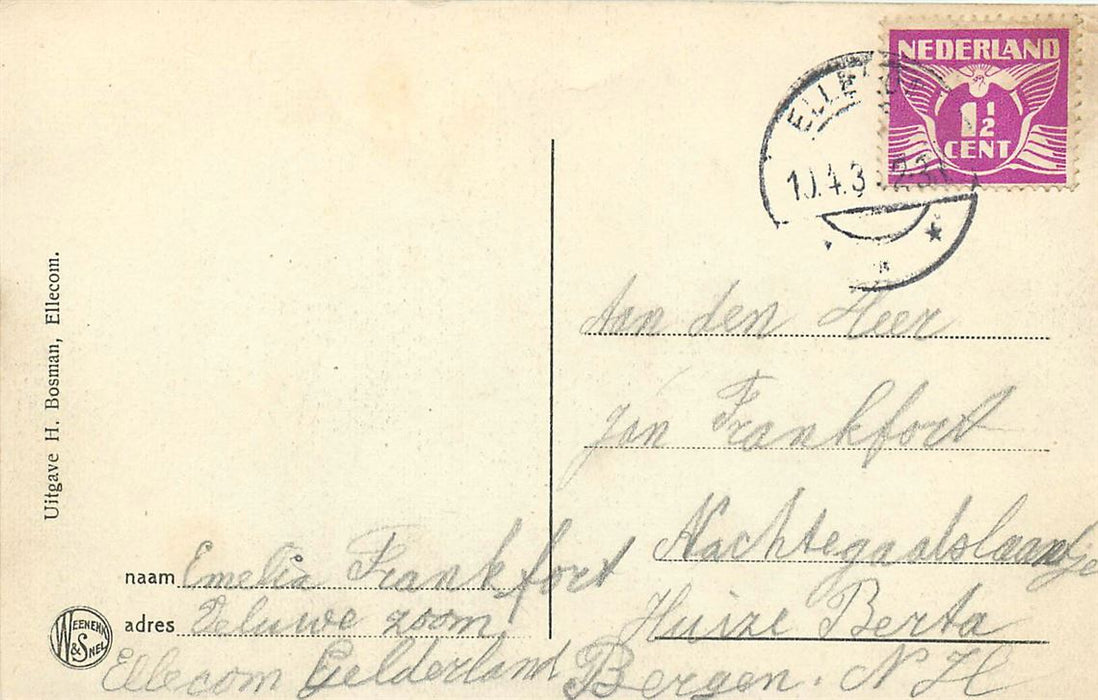 NEDERLAND
1½
CENT
10.4.3
Uitgave H. Bosman, Ellecom.
Aan den Heer
Jan Frankfort
Nachtegaalslaantje
Huize Berta
Bergen. N H
naam Emelia Frankfort
adres Veluwe zoom
Ellecom Gelderland
WEENENK
& SNEL